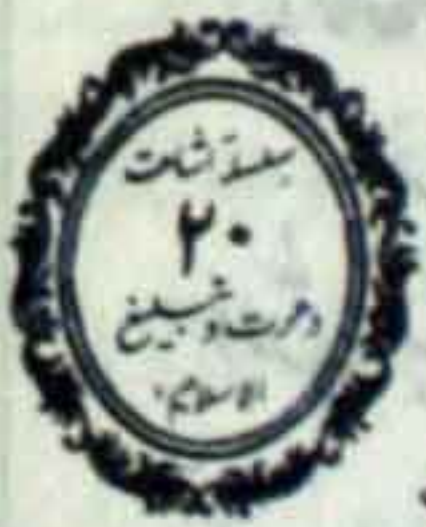 سلسلۂ نشات
۲۰
دعوت و تبلیغ
الاسلام